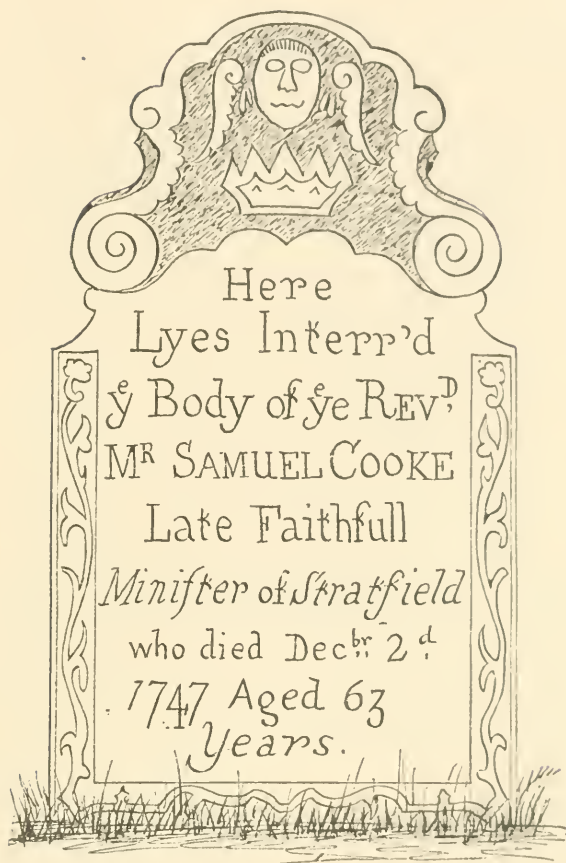 Here
Lyes Interr'd
yᵉ Body of yᵉe REVᴰ,
Mᴿ SAMUEL COOKE
Late Faithfull
Miniſter of Stratfield
who died Decᵇʳ 2ᵈ
1747 Aged 63
Years.